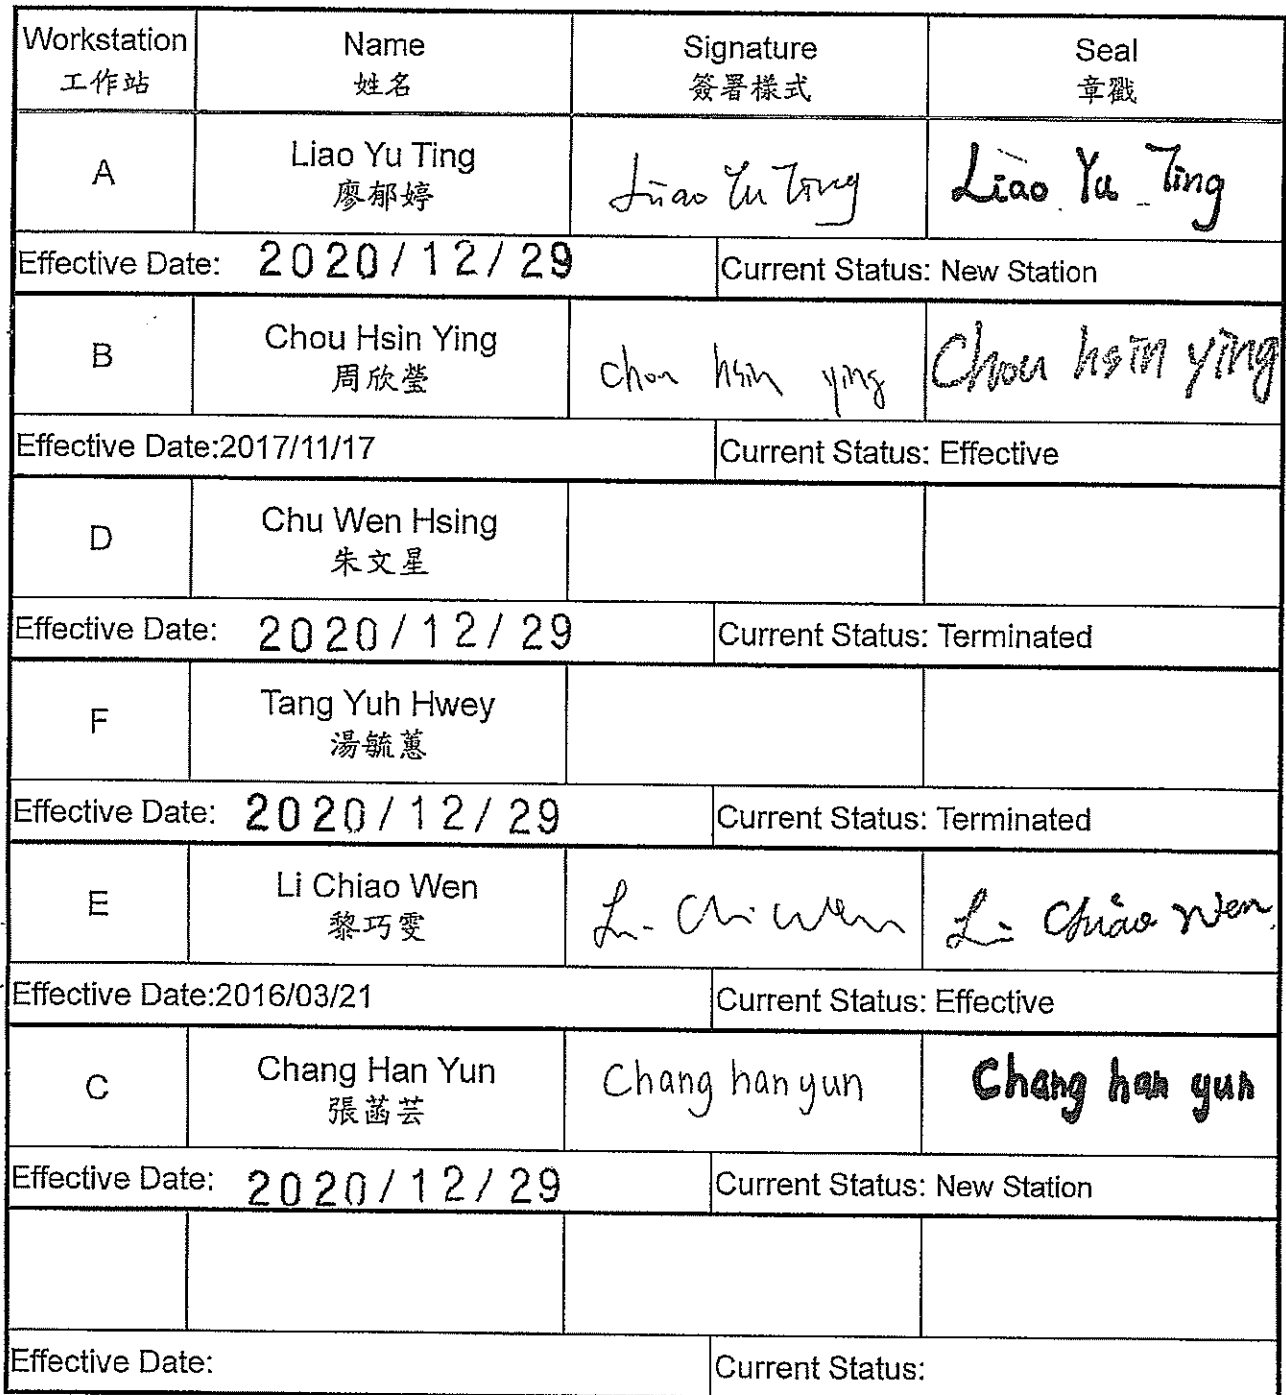 Workstation
工作站
Name
姓名
Signature
簽署樣式
Seal
章戳
A
Liao Yu Ting
廖郁婷
Liao Yu Ting
Liao Yu Ting
Effective Date: 2020/12/29
Current Status: New Station
B
Chou Hsin Ying
周欣瑩
chou hsin ying
Chou hsin ying
Effective Date:2017/11/17
Current Status: Effective
D
Chu Wen Hsing
朱文星
Effective Date: 2020/12/29
Current Status: Terminated
F
Tang Yuh Hwey
湯毓蕙
Effective Date: 2020/12/29
Current Status: Terminated
E
Li Chiao Wen
黎巧雯
Li Chi Wen
Li Chiao Wen
Effective Date:2016/03/21
Current Status: Effective
C
Chang Han Yun
張菡芸
Chang han yun
Chang han yun
Effective Date: 2020/12/29
Current Status: New Station
Effective Date:
Current Status: